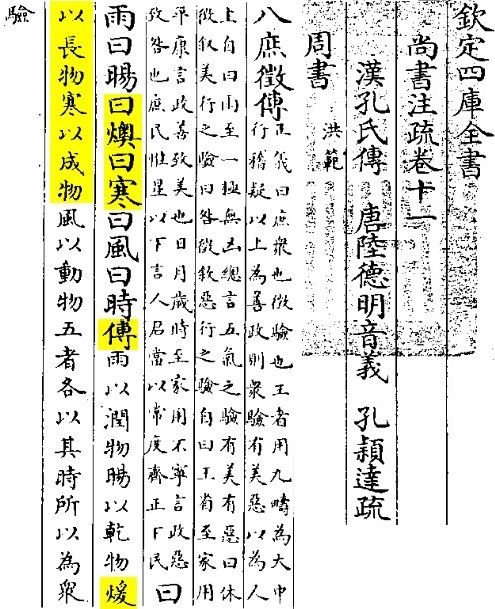 欽定四庫全書
尚書注疏卷十一
漢孔氏傳 唐陸德明音義 孔頴達疏
周書
洪範
八庶徵傳
正義曰庶衆也徵驗也王者用九疇為大中
行稽疑以上為善政則衆驗有美惡以為人
上自曰雨至一極無凶總言五氣之驗有美有惡曰休
徵叙美行之驗曰咎徵叙惡行之驗自曰王省至家用
平康言政善致美也日月歲時至家用不寧言政惡
致咎也庶民惟星以下言人君當以常度齊正下民
曰
雨曰暘曰燠曰寒曰風曰時傳雨以潤物暘以乾物煖
以長物寒以成物風以動物五者各以其時所以為衆
驗